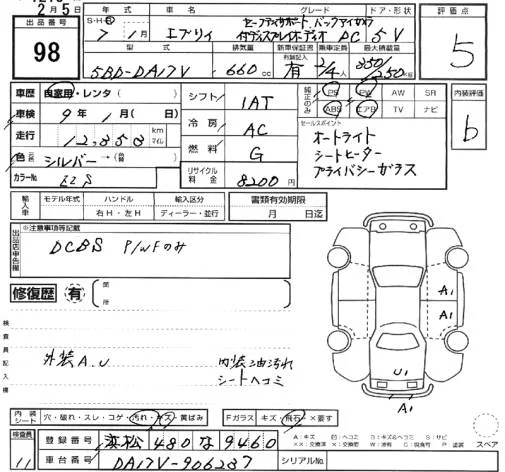 2月5日
出品番号
98
S・H・R 車名 グレード ドア・形状
7年 1月 エブリイ セーフティサポート バックアイカメラ
付ディスプレイオーディオ PC 5V
評価点
5
型式 排気量 新車保証書 乗車定員 最大積載量
5BD-DA17V 660cc 有 2/4人 350/250kg
車歴 自家用・レンタ( )
車検 9年 1月( 日)
走行 12,353 km マイル
色 シルバー→(替 )
カラーNo
シフト 1AT
冷房 AC
燃料 G
リサイクル料金 8200円
純正のみ PS PW AW SR
ABS エアB TV ナビ
内装評価
b
セールスポイント
オートライト
シートヒーター
プライバシーガラス
輸入車 モデル年式 ハンドル 輸入区分
右H・左H ディーラー・並行
書類有効期限
月 日迄
出品店申告欄
※注意事項等記載
DCBS P/WFのみ
修復歴 有 箇所
検査員記入欄
外装A.U 内装油汚れ
シートヘコミ
A1
A1
U1
A1
内装シート 穴・破れ・スレ・コゲ・汚れ・キズ・黄ばみ
Fガラス キズ・飛石・×要す
スペア
検査員
11
登録番号 浜松 480 な 9460
車台番号 DA17V-906237
シリアルNo.